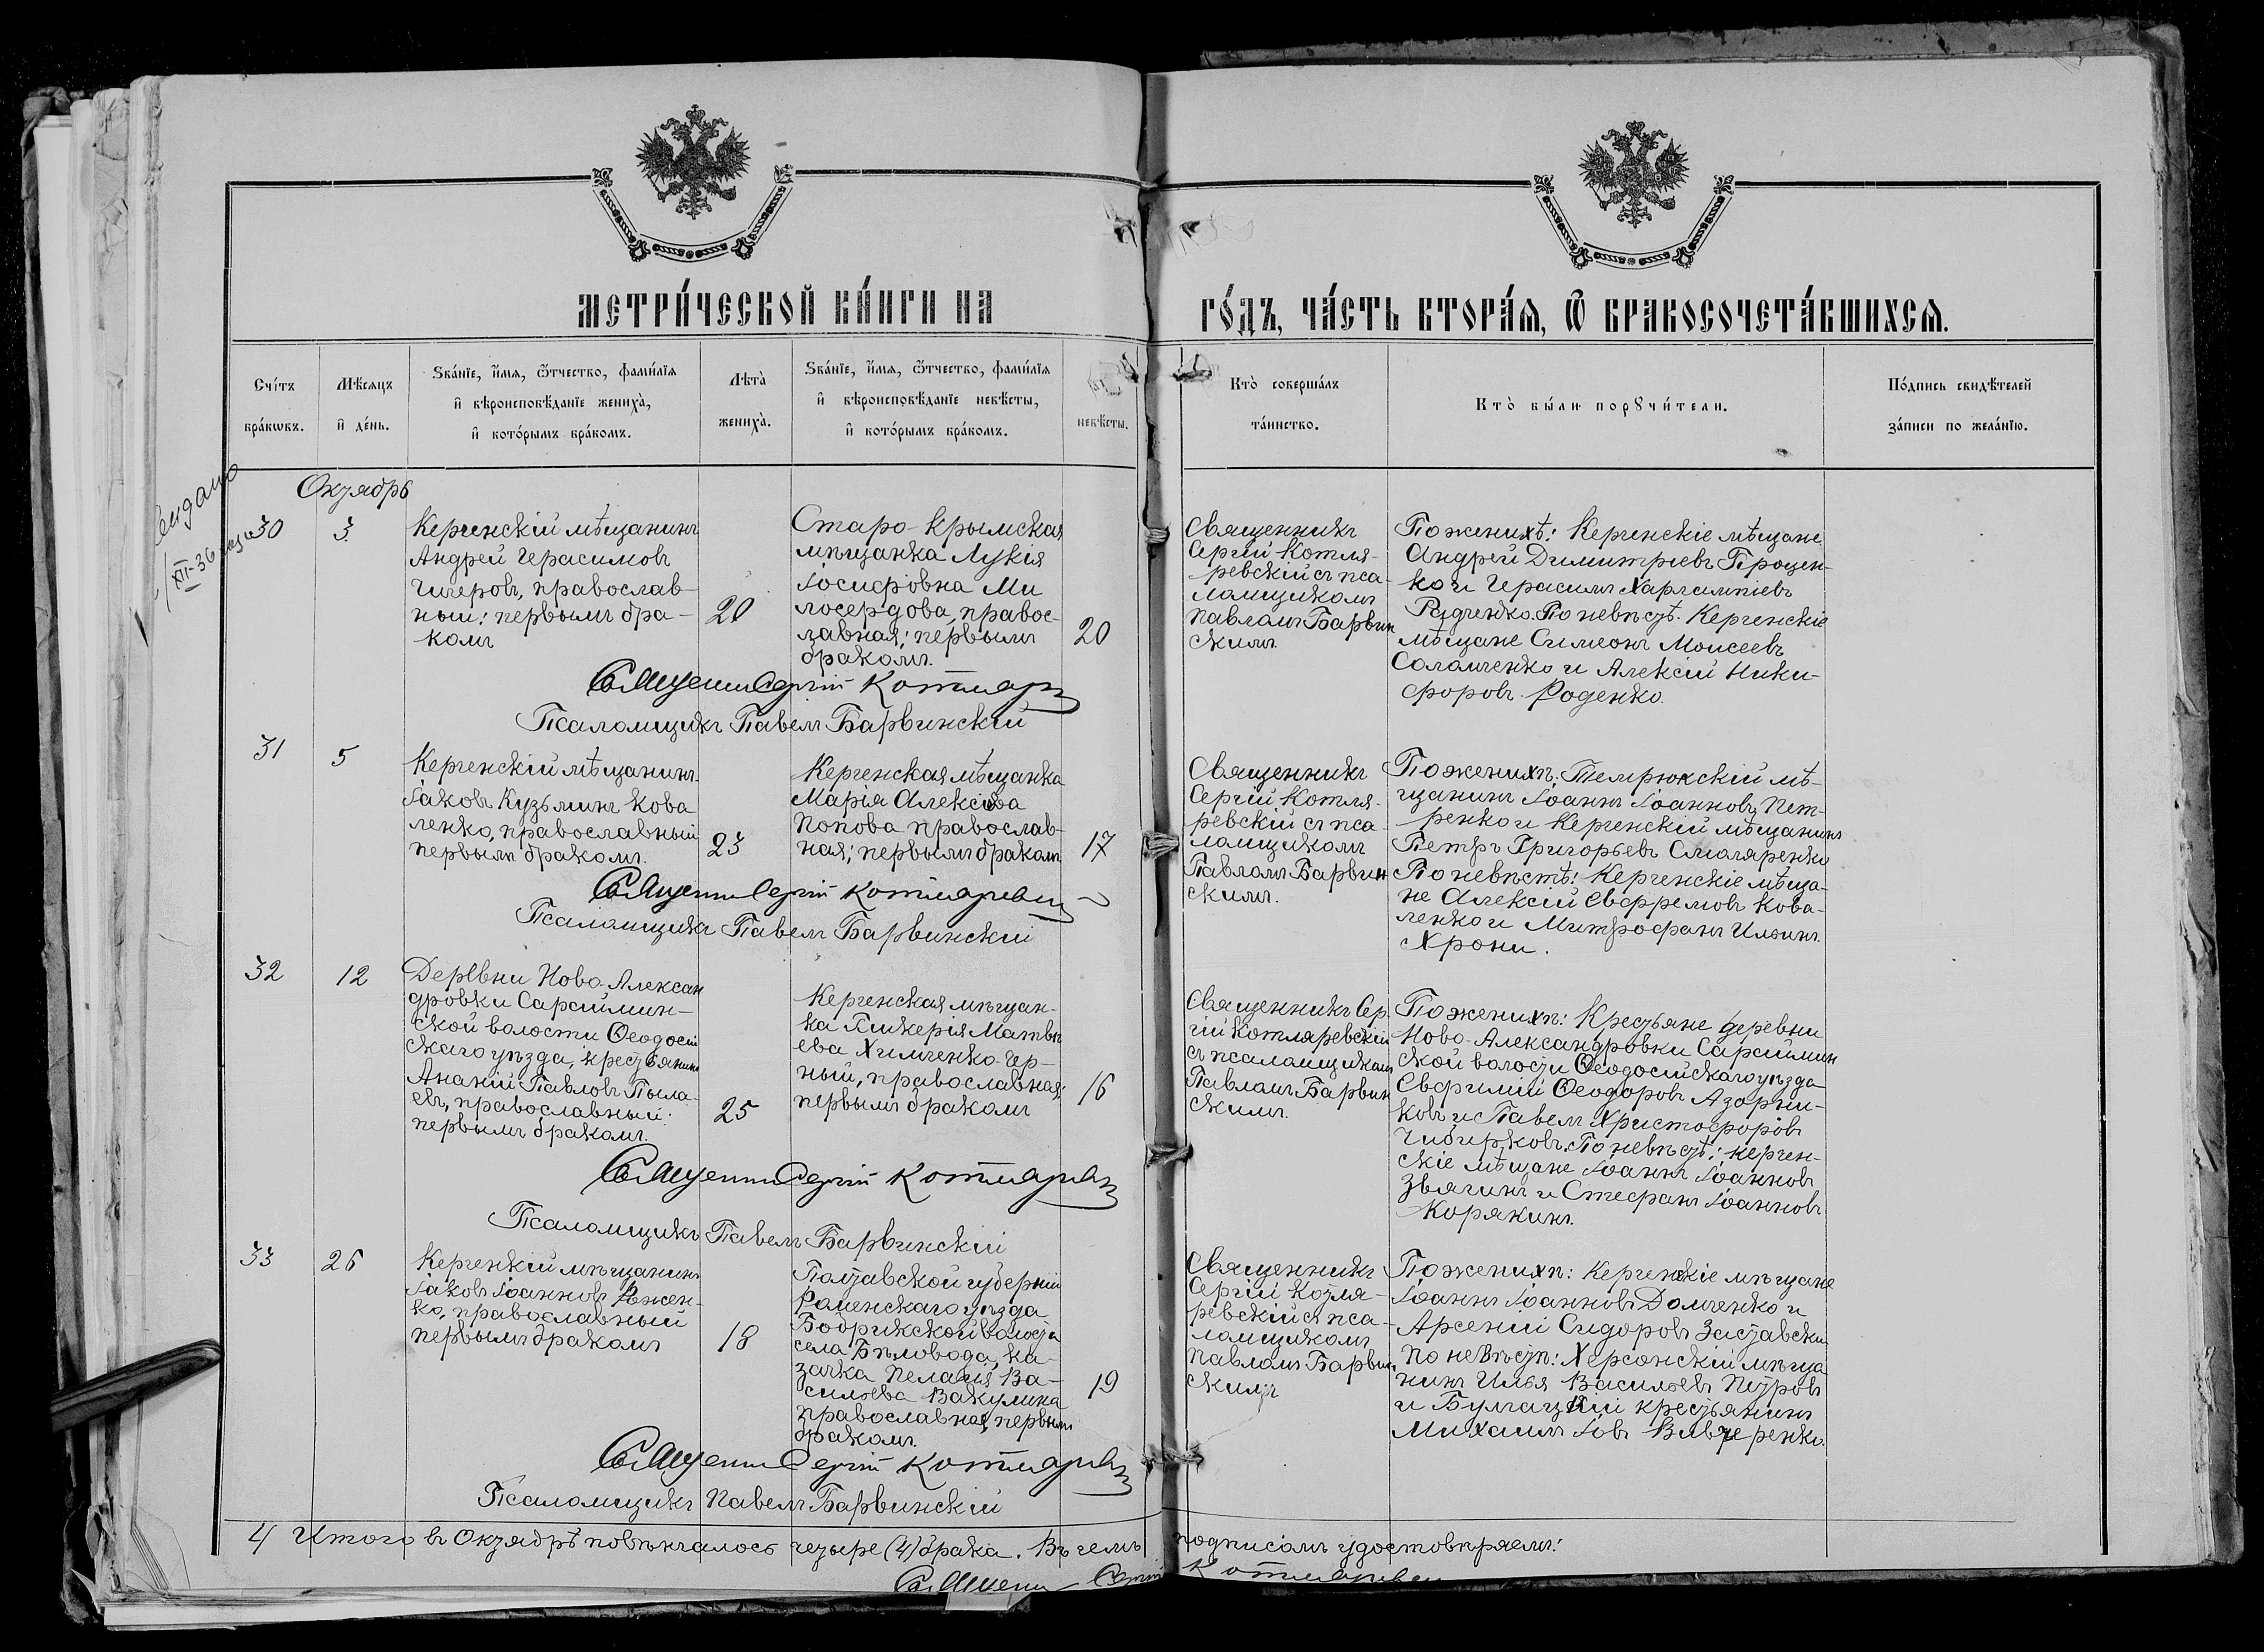 МЕТРИ́ЧЕСКОЙ КНИ́ГИ НА ГО́ДЪ, ЧА́СТЬ ВТОРА́Я, Ѿ БРАКОСОЧЕТА́ВШИХСЯ.
Сче́тъ
бра́ковъ.
Мѣ́сяцъ
и҆ де́нь.
Ѕва́нїе, и҆́мя, ѻ҆́тчество, фами́лїя
и҆ вѣроисповѣ́данїе жениха̀,
и҆ кото́рымъ бра́комъ.
Лѣта̀
жениха̀.
Ѕва́нїе, и҆́мя, ѻ҆́тчество, фами́лїя
и҆ вѣроисповѣ́данїе невѣ́сты,
и҆ кото́рымъ бра́комъ.
невѣ́сты.
Кто̀ соверша́лъ
та́инство.
Кто̀ бы́ли порꙋчи́тели.
По́дпись свидѣ́телей
за́писи по жела́нїю.
Октябрь
30
3.
Керченскій мѣщанинъ
Андрей Герасимовъ
Чигеровъ, православ-
ный; первымъ бра-
комъ
20
Старо-Крымская
мѣщанка Лукія
Іосифовна Ми
лосердова, правос-
лавная; первымъ
бракомъ.
20
Священникъ
Сергій Котля-
ревскій съ пса-
ломщикомъ
Павломъ Барвин
скимъ.
По женихѣ: Керченскіе мѣщане
Андрей Димитріевъ Процен-
ко и Герасимъ Харлампіевъ
Радченко. По невѣстѣ. Керченскіе
мѣщане Симеонъ Моисеевъ
Саламченко и Алексій Ники-
форовъ Роденко.
Священ Сергій Котляр
Псаломщикъ Павелъ Барвинскій
31
5
Керченскій мѣщанинъ.
Іаковъ Кузьминъ Кова
ленко, православный
первымъ бракомъ.
23
Керченская мѣщанка
Марія Алексіева
Попова православ-
ная; первымъ бракомъ
17
Священникъ
Сергій Котля-
ревскій съ пса-
ломщикомъ
Павломъ Барвин
скимъ.
По женихѣ: Темрюкскій мѣ-
щанинъ Іоаннъ Іоанновъ Пет-
ренко и Керченскій мѣщанинъ
Петръ Григорьевъ Смоляренко
По невѣстѣ: Керченскіе мѣща-
не Алексій Евфремовъ Кова-
ленко и Митрофанъ Ильинъ
Хрони.
Священ Сергій Котляревск
Псаломщикъ Павелъ Барвинскій
32
12
Деревни Ново-Алексан
дровки Сараймин-
ской волости Ѳеодосій
скаго уѣзда, крестьянинъ
Ананій Павловъ Пыла-
евъ, православный;
первымъ бракомъ.
25
Керченская мѣщан-
ка Гликерія Матвѣ
ева Химченко-Чер-
ный, православная;
первымъ бракомъ
16
Священникъ Сер-
гій Котляревскій
съ псаломщикомъ
Павломъ Барвин
скимъ.
По женихѣ: Крестьяне деревни
Ново-Александровки Сараймин
ской волости Ѳеодосійскаго уѣзда
Евфимій Ѳеодоровъ Азарни-
ковъ и Павелъ Христофоровъ
Чибирковъ. По невѣстѣ: керчен-
скіе мѣщане Іоаннъ Іоанновъ
Звягинъ и Стефанъ Іоанновъ
Корякинъ.
Священ Сергій Котлярев
Псаломщикъ Павелъ Барвинскій
33
26
Керченскій мѣщанинъ
Іаковъ Іоанновъ
православный
первымъ бракомъ
18
Полтавской губерніи
Роменскаго уѣзда
Бобрикской волости
села Бѣловода, ка-
зачка Пелагія Ва-
сильева Вакулина
православная, первымъ
бракомъ.
19
Священникъ
Сергій Котля-
ревскій съ пса-
ломщикомъ
Павломъ Барвин
скимъ
По женихѣ: Керченскіе мѣщане
Іоаннъ Іоанновъ Домченко и
Арсеній Сидоровъ Заставскій
По невѣстѣ: Херсонскій мѣща
нинъ Илья Васильевъ Петровъ
и крестьянинъ
Михаилъ Іовъ
Священ Сергій Котлярев
Псаломщикъ Павелъ Барвинскій
4 Итого въ Октябрѣ повѣнчалось четыре (4) брака. Въ чемъ подписомъ удостовѣряемъ:
Священ Сергій Котляревск